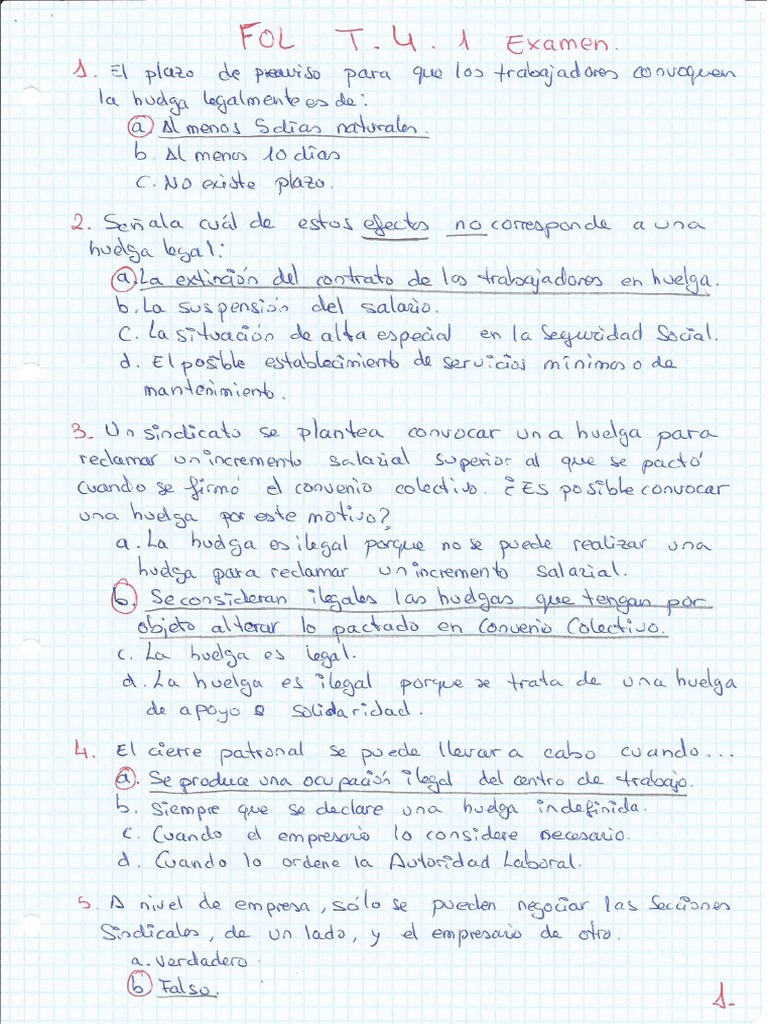 FOL T.4.1 Examen.
1. El plazo de preaviso para que los trabajadores convoquen
la huelga legalmente es de:
a Al menos 5 días naturales.
b. Al menos 10 días
c. No existe plazo.
2. Señala cuál de estos efectos no corresponde a una
huelga legal:
a. La extinción del contrato de los trabajadores en huelga.
b. La suspensión del salario.
c. La situación de alta especial en la Seguridad Social.
d. El posible establecimiento de servicios mínimos o de
mantenimiento.
3. Un sindicato se plantea convocar una huelga para
reclamar un incremento salarial superior al que se pactó
cuando se firmó el convenio colectivo. ¿Es posible convocar
una huelga por este motivo?
a. La huelga es ilegal porque no se puede realizar una
huelga para reclamar un incremento salarial.
b. Se consideran ilegales las huelgas que tengan por
objeto alterar lo pactado en Convenio Colectivo.
c. La huelga es legal.
d. La huelga es ilegal porque se trata de una huelga
de apoyo o solidaridad.
4. El cierre patronal se puede llevar a cabo cuando...
a. Se produce una ocupación ilegal del centro de trabajo.
b. Siempre que se declare una huelga indefinida.
c. Cuando el empresario lo considere necesario.
d. Cuando lo ordene la Autoridad Laboral.
5. A nivel de empresa, sólo se pueden negociar las Secciones
Sindicales, de un lado, y el empresario de otro.
a. Verdadero.
b Falso.
1.-